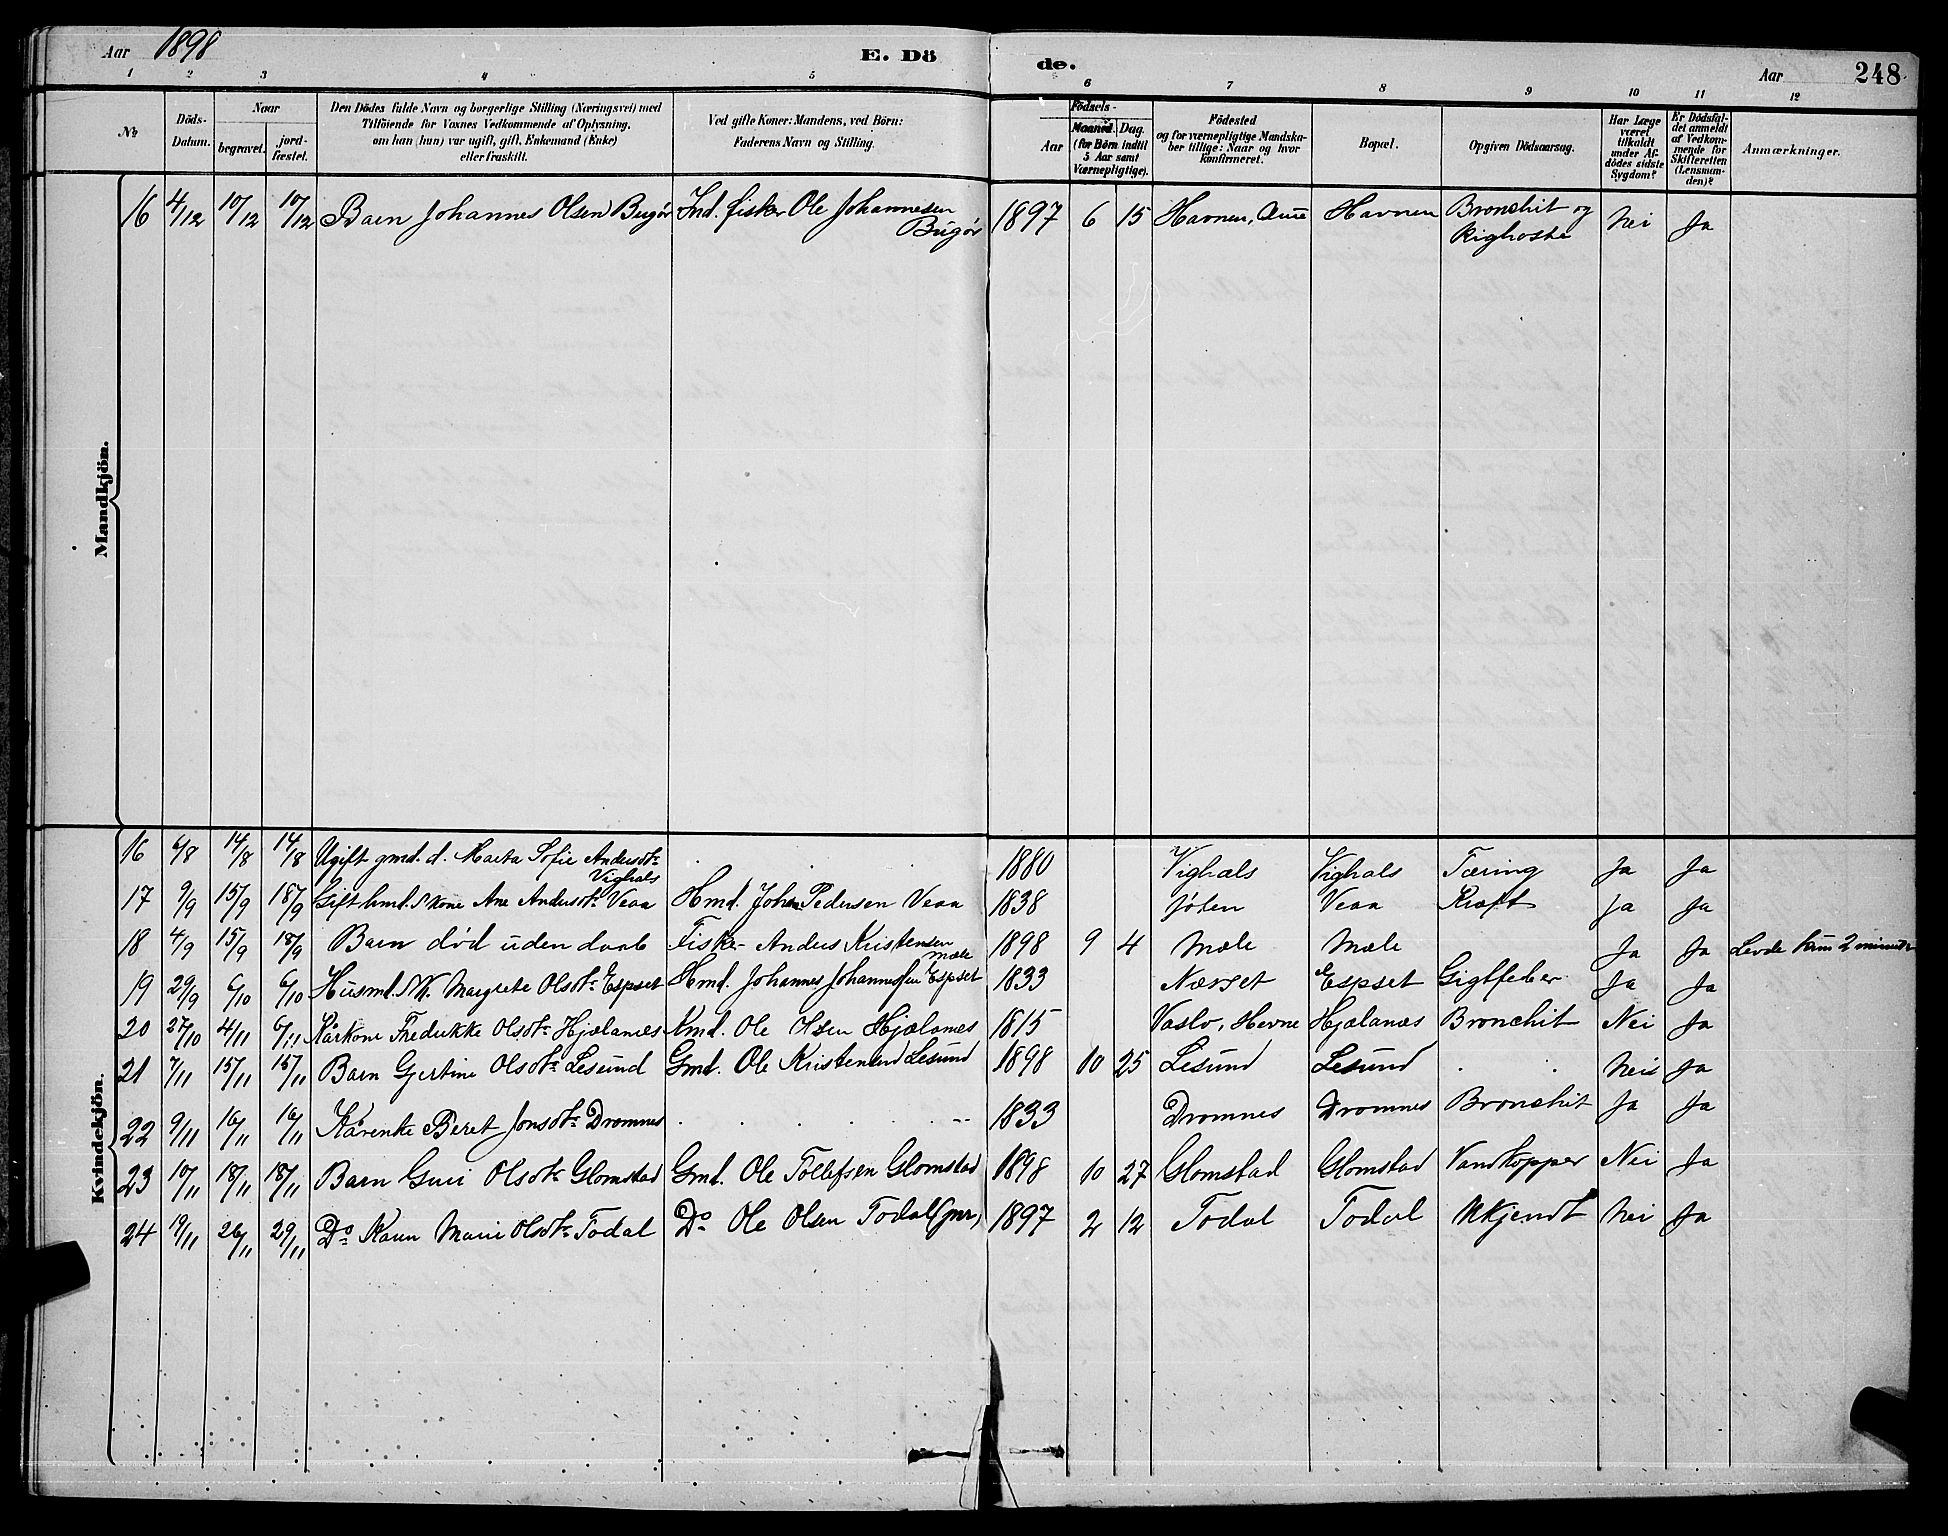 Aar 1898 E. Dö de. Aar 248
1 2 3 4 5 6 7 8 9 10 11 12
No
Döds-
Datum.
Naar
begravet.
jord-
fæstet.
Den Dödes fulde Navn og borgerlige Stilling (Næringsvei) med
Tilföiende for Voxnes Vedkommende af Oplysning,
om han (hun) var ugift, gift, Enkemand (Enke)
eller fraskilt.
Ved gifte Koner: Mandens, ved Börn:
Faderens Navn og Stilling.
Födsels-
Aar
Maaned. Dag.
(for Börn indtil
5 Aar samt
Værnepligtige).
Födested
og for værnepligtige Mandska-
ber tillige: Naar og hvor
konfirmeret.
Bopæl.
Opgiven Dödsaarsag.
Har Læge
været
tilkaldt
under Af-
dödes sidste
Sygdom?
Er Dödsfal-
det anmeldt
af Vedkom-
mende for
Skifteretten
(Lensman-
den)?
Anmærkninger.
Mandkjön.
16 4/12 10/12 10/12 Barn Johannes Olsen Bugør Ind. fisker Ole Johannesen Bugør 1897 6 15 Havnen, Havnen Bronchit og
Kighoste Nei Ja
Kvindekjön.
16 6/8 14/8 14/8 Ugift gmd. d. Marta Sofie Andersdtr
Vighals 1880 Vighals Vighals Tæring Ja Ja
17 9/9 15/9 18/9 Gift hmd. Kone Ane Andersdtr Veaa Hmd. Johan Pedersen Veaa 1838 Jøten Veaa Kræft Ja Ja
18 4/9 15/9 18/9 Barn død uden daab Fisker Anders Kristensen
Mæle 1898 9 4 Mæle Mæle Ja Ja Levde kun 2 minuter
19 29/9 6/10 6/10 Husmd. K. Margrete Olsdtr Espset Hmd. Johannes Johannessen Espset 1833 Espset Gigtfeber Ja Ja
20 27/10 4/11 6/11 Kårkone Fredrikke Olsdtr Hjælanæs Kmd. Ole Olsen Hjælanes 1815 Vaslv, Hevne Hjælanæs Bronchit Nei Ja
21 7/11 15/11 15/11 Barn Gjertine Olsdtr Lesund Gmd. Ole Kristensen Lesund 1898 10 25 Lesund Lesund . . Nei Ja
22 9/11 16/11 16/11 Kårenke Beret Jonsdtr Dromnes 1833 Dromnes Dromnes Bronchit Ja Ja
23 10/11 18/11 18/11 Barn Guri Olsdtr Glomstad Gmd. Ole Tollefsen Glomstad 1898 10 27 Glomstad Glomstad Vandkopper Nei Ja
24 19/11 26/11 29/11 Do Karen Marie Olsdtr Todal Do Ole Olsen Todal (jnr) 1897 2 12 Todal Todal Ukjendt Nei Ja